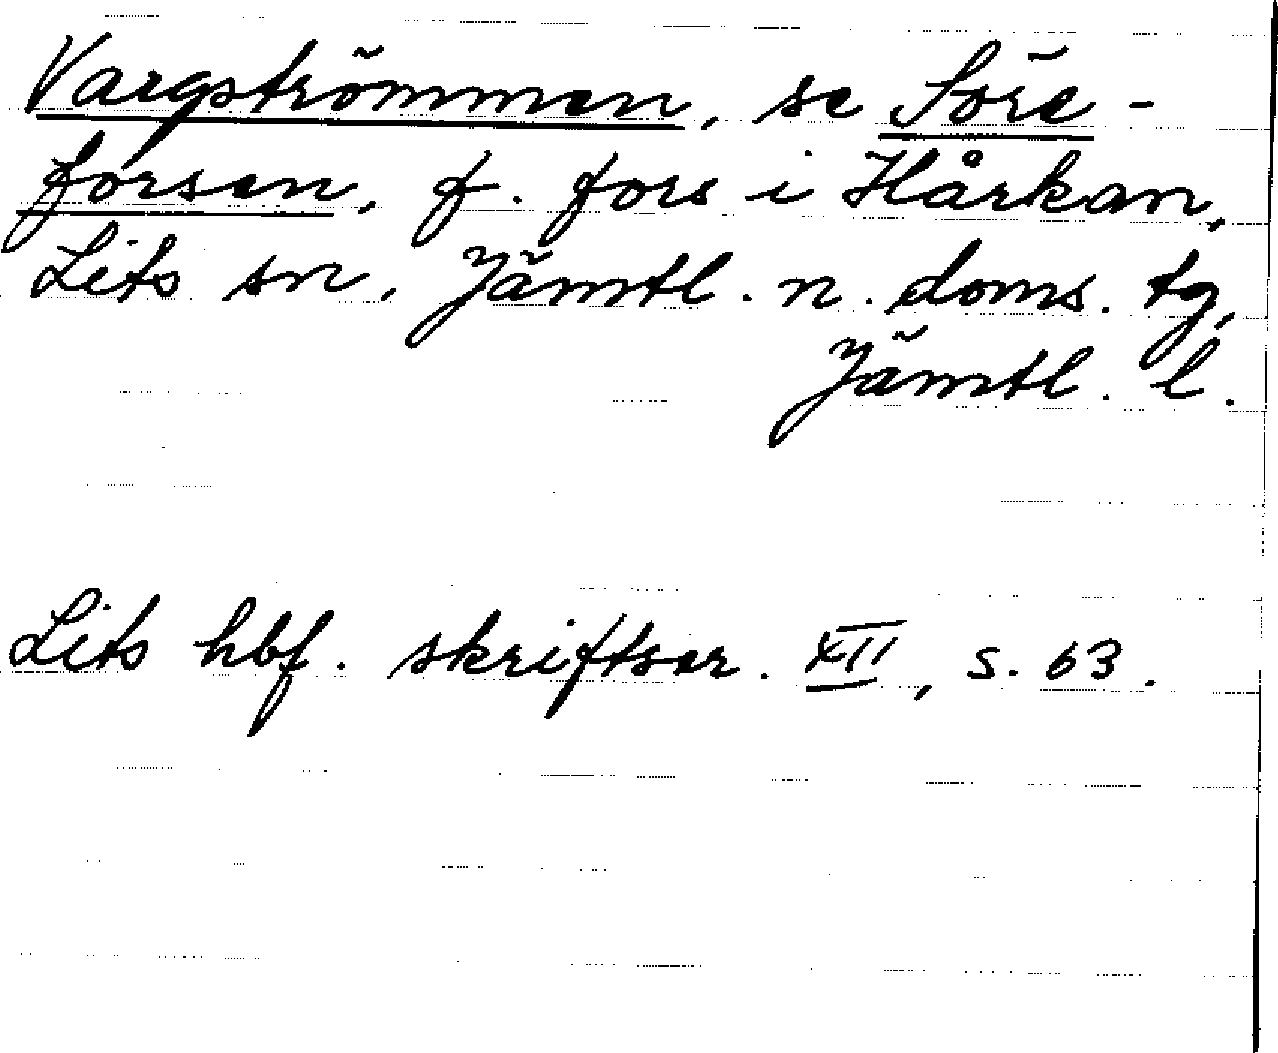 Vargströmmen, se Söre-
forsen, f. fors i Hårkan,
Lits sn, Jämtl. n. doms. tg,
Jämtl. l.
Lits hbf. skriftser. XII, s. 63.